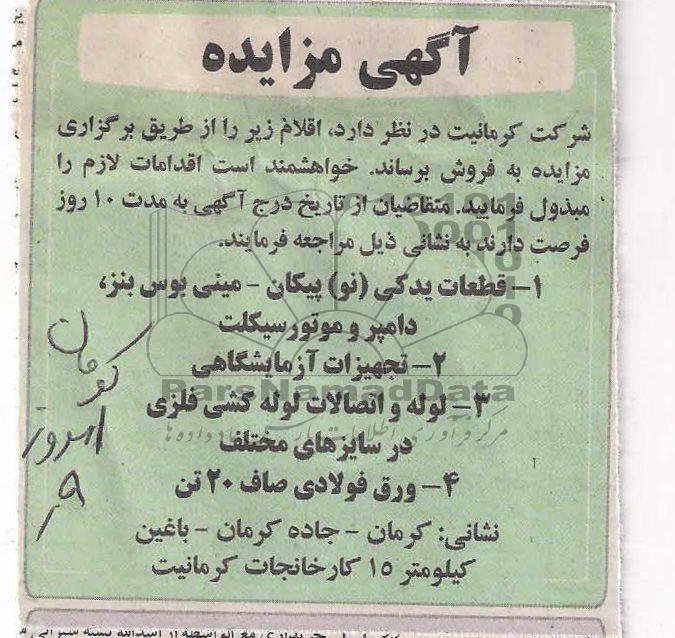 آگهی مزایده
شرکت کرمانیت در نظر دارد، اقلام زیر را از طریق برگزاری
مزایده به فروش برساند. خواهشمند است اقدامات لازم را
مبذول فرمایید. متقاضیان از تاریخ درج آگهی به مدت ۱۰ روز
فرصت دارند به نشانی ذیل مراجعه فرمایند.
۱- قطعات یدکی (نو) پیکان - مینی بوس بنز،
دامپر و موتورسیکلت
۲- تجهیزات آزمایشگاهی
ParsNamadData
۳- لوله و اتصالات لوله کشی فلزی
در سایزهای مختلف
۴- ورق فولادی صاف ۲۰ تن
نشانی: کرمان - جاده کرمان - باغین
کیلومتر ۱۵ کارخانجات کرمانیت
کرمان
امروز